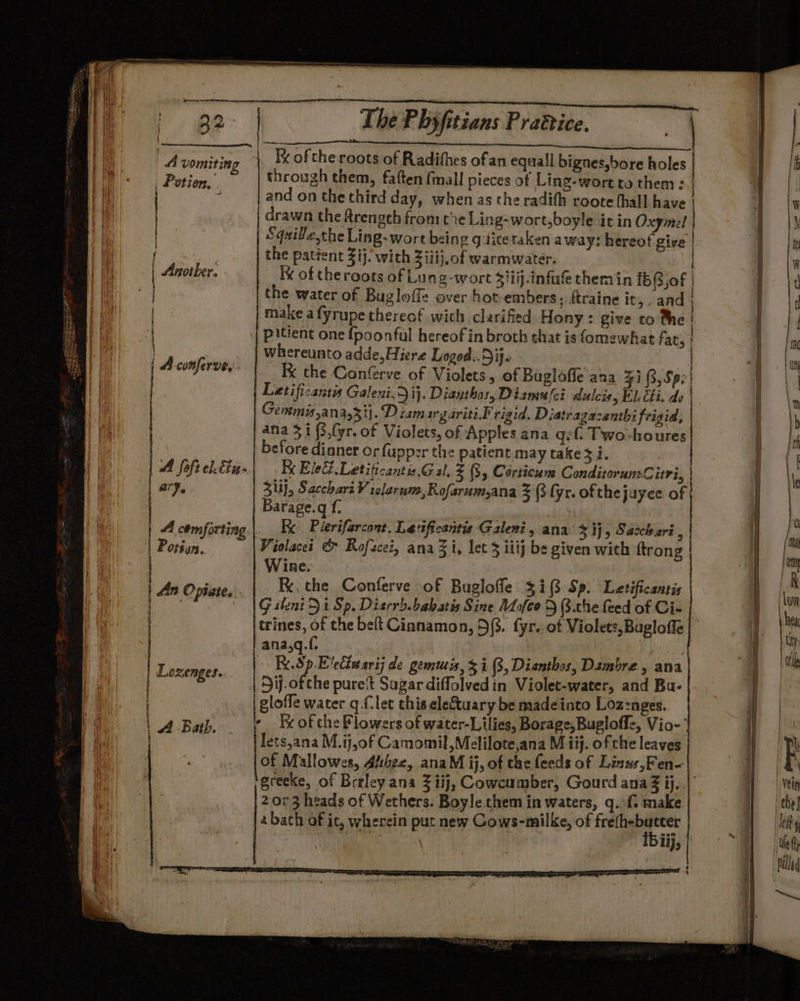 32
The Physitians Practice.
A vomiting
Potion.
℞ of the roots of Radishes of an equall bignes, bore holes
through them, fasten small pieces of Ling-wort to them:
and on the third day, when as the radish roote shall have
drawn the strength from the Ling-wort, boyle it in Oxymel
Squille, the Ling-wort being quite taken away: hereof give
the patient ℥ij. with ℥iiij. of warm water.
Another.
℞ of the roots of Lung-wort ℥iiij. infuse them in ℔ß, of
the water of Buglosse over hot embers; straine it, and
make a syrupe thereof with clarified Hony: give to the
patient one spoonful hereof in broth that is somewhat fat,
whereunto adde, Hiere Logod. ℈ij.
A conserve.
℞ the Conserve of Violets, of Buglosse ana ℥i ß, Sp:
Letificantis Galeni, ℈ij. Dianthos, Diamusci dulcis, Elécti. de
Gemmis, ana, ʒij. Diamargariti. Frigid. Diatragacanthi frigid,
ana ʒi ß, syr. of Violets, of Apples ana q. s. Two houres
before dinner or supper the patient may take ʒ i.
A soft electu-
ary.
℞ Elect. Letificantis, Gal. ℥ ß, Corticum Conditorum Citri,
ʒiij, Sacchari Violarum, Rosarum, ana ℥ ß syr. of the juyce of
Barage. q s.
A comforting
Potion.
℞ Plerisarcont. Letificantis Galeni, ana ʒij, Sacchari,
Violacei & Rosacei, ana ℥i, let ʒ iiij be given with strong
Wine.
An Opiate.
℞. the Conserve of Buglosse ʒi ß Sp. Letificantis
Galeni ℈ i Sp. Diarrh. habatis Sine Mosco ℈ ß. the seed of Ci-
trines, of the best Cinnamon, ℈ß. syr. of Violets, Buglosse
ana, q. s.
Lozenges.
℞. Sp. Electuarij de gemmis, ʒ i ß, Dianthos, Dambre, ana
℈ij. of the purest Sugar dissolved in Violet-water, and Bu-
glosse water q. s. let this electuary be made into Lozenges.
A Bath.
℞ of the Flowers of water-Lilies, Borage, Buglosse, Vio-
lets, ana M. ij, of Camomil, Melilote, ana M iij. of the leaves
of Mallowes, Althee, ana M ij, of the seeds of Linus, Fen-
greeke, of Barley ana ℥ iij, Cowcumber, Gourd ana ℥ ij.
2 or 3 heads of Wethers. Boyle them in waters, q. s. make
a bath of it, wherein put new Cows-milke, of fresh-butter
℔ iij,